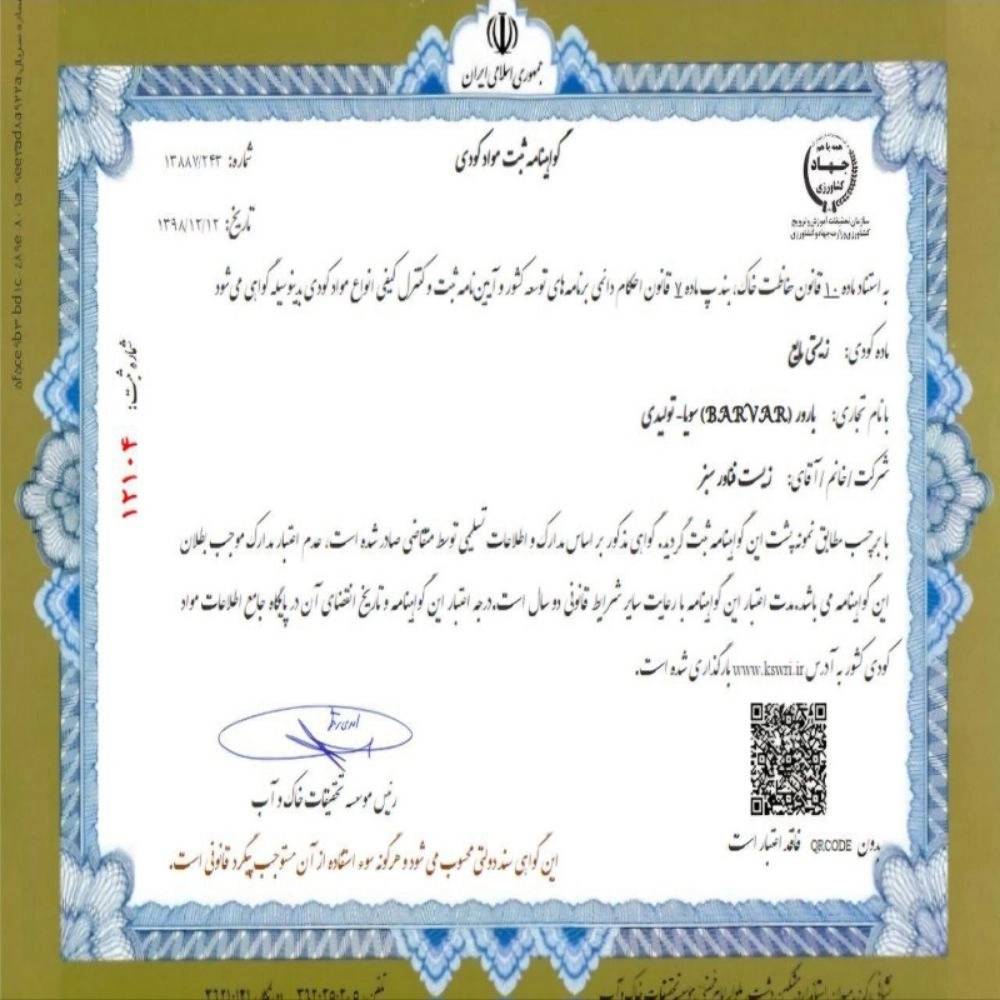 جمهوری اسلامی ایران
همه با هم
جهاد
کشاورزی
سازمان تحقیقات آموزش و ترویج
کشاورزی وزارت جهاد کشاورزی
گواهینامه ثبت مواد کودی
شماره: ۱۳۸۸۷/۲۴۳
تاریخ: ۱۳۹۸/۱۲/۱۲
به استناد ماده ۱۰ قانون حفاظت خاک، بند پ ماده ۷ قانون احکام دائمی برنامه های توسعه کشور و آیین نامه ثبت و کنترل کیفی انواع مواد کودی بدینوسیله گواهی می شود
ماده کودی: زیستی مایع
با نام تجاری: بارور (BARVAR) سویا - تولیدی
شرکت / خانم / آقای: زیست فناور سبز
با برچسب مطابق نمونه پشت این گواهینامه ثبت گردید. گواهی مذکور بر اساس مدارک و اطلاعات تسلیمی توسط متقاضی صادر شده است، عدم اعتبار مدارک موجب بطلان
این گواهینامه می باشد. مدت اعتبار این گواهینامه با رعایت سایر شرایط قانونی دو سال است. درجه اعتبار این گواهینامه و تاریخ انقضای آن در پایگاه جامع اطلاعات مواد
کودی کشور به آدرس www.kswri.ir بارگذاری شده است.
شماره ثبت:
۱۲۱۰۴
رئیس موسسه تحقیقات خاک و آب
بدون QRCODE فاقد اعتبار است
این گواهی سند دولتی محسوب می شود و هرگونه سوء استفاده از آن مستوجب پیگرد قانونی است.